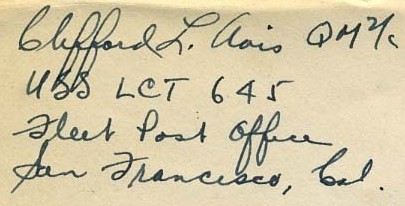 Clifford L. Avis QM 2/c
USS LCT 645
Fleet Post Office
San Francisco, Cal.